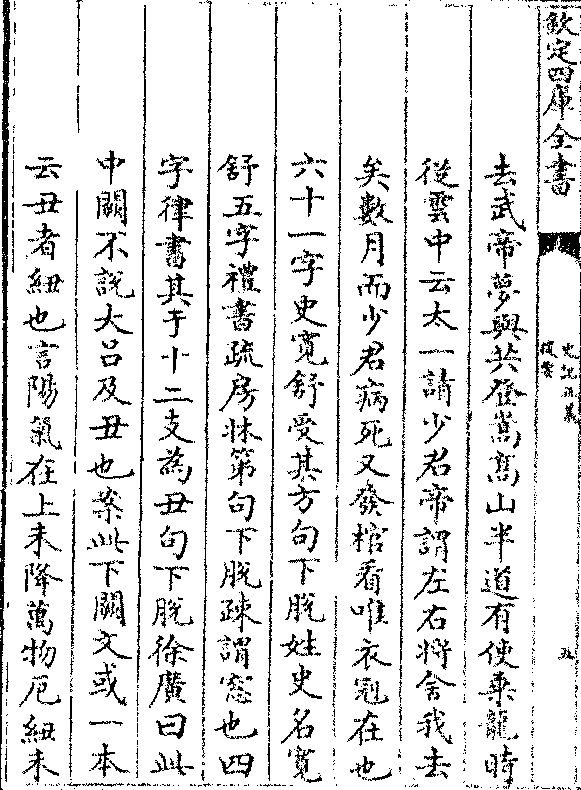 欽定四庫全書
史記正義
提要
五
去武帝夢與共登嵩髙山半道有使乗龍時
從雲中云太一請少君帝謂左右將舍我去
矣數月而少君病死又發棺看唯衣冠在也
六十一字史寛舒受其方句下脫姓史名寛
舒五字禮書疏房牀第句下脫疎謂窓也四
字律書其于十二支為丑句下脫徐廣曰此
中闕不說大吕及丑也案此下闕文或一本
云丑者紐也言陽氣在上未降萬物厄紐未